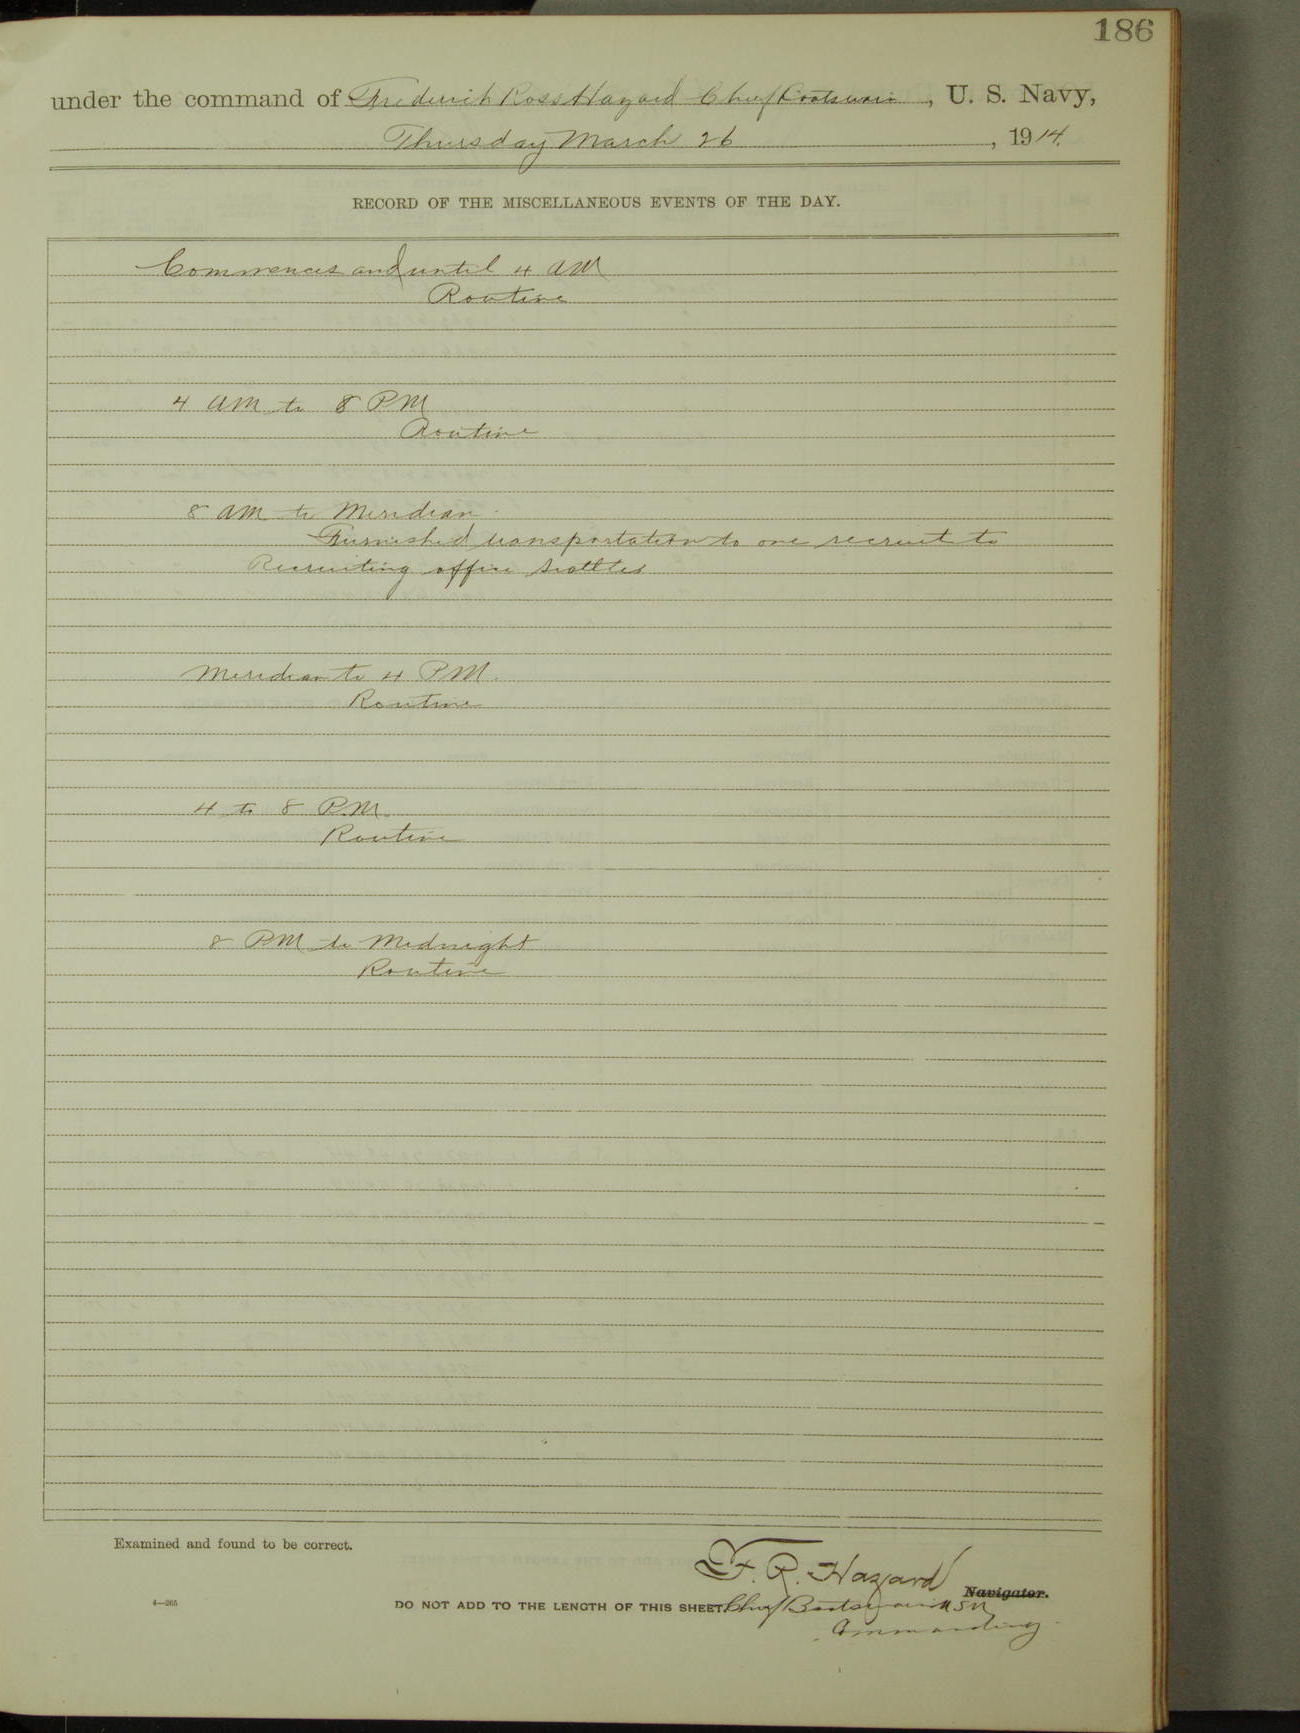 186
under the command of Frederick Ross Hazard Chief Boatswain, U. S. Navy,
Thursday March 26, 1914.
RECORD OF THE MISCELLANEOUS EVENTS OF THE DAY.
Commences and until 4 AM
Routine
4 AM to 8 PM
Routine
8 AM to Meridian.
Furnished transportation to one recruit to
Recruiting office
Meridian to 4 PM.
Routine
4 to 8 P.M.
Routine
8 PM to Midnight
Routine
Examined and found to be correct.
F. R. Hazard
Navigator.
4—265
DO NOT ADD TO THE LENGTH OF THIS SHEET. Chief Boatswain USN
Commanding